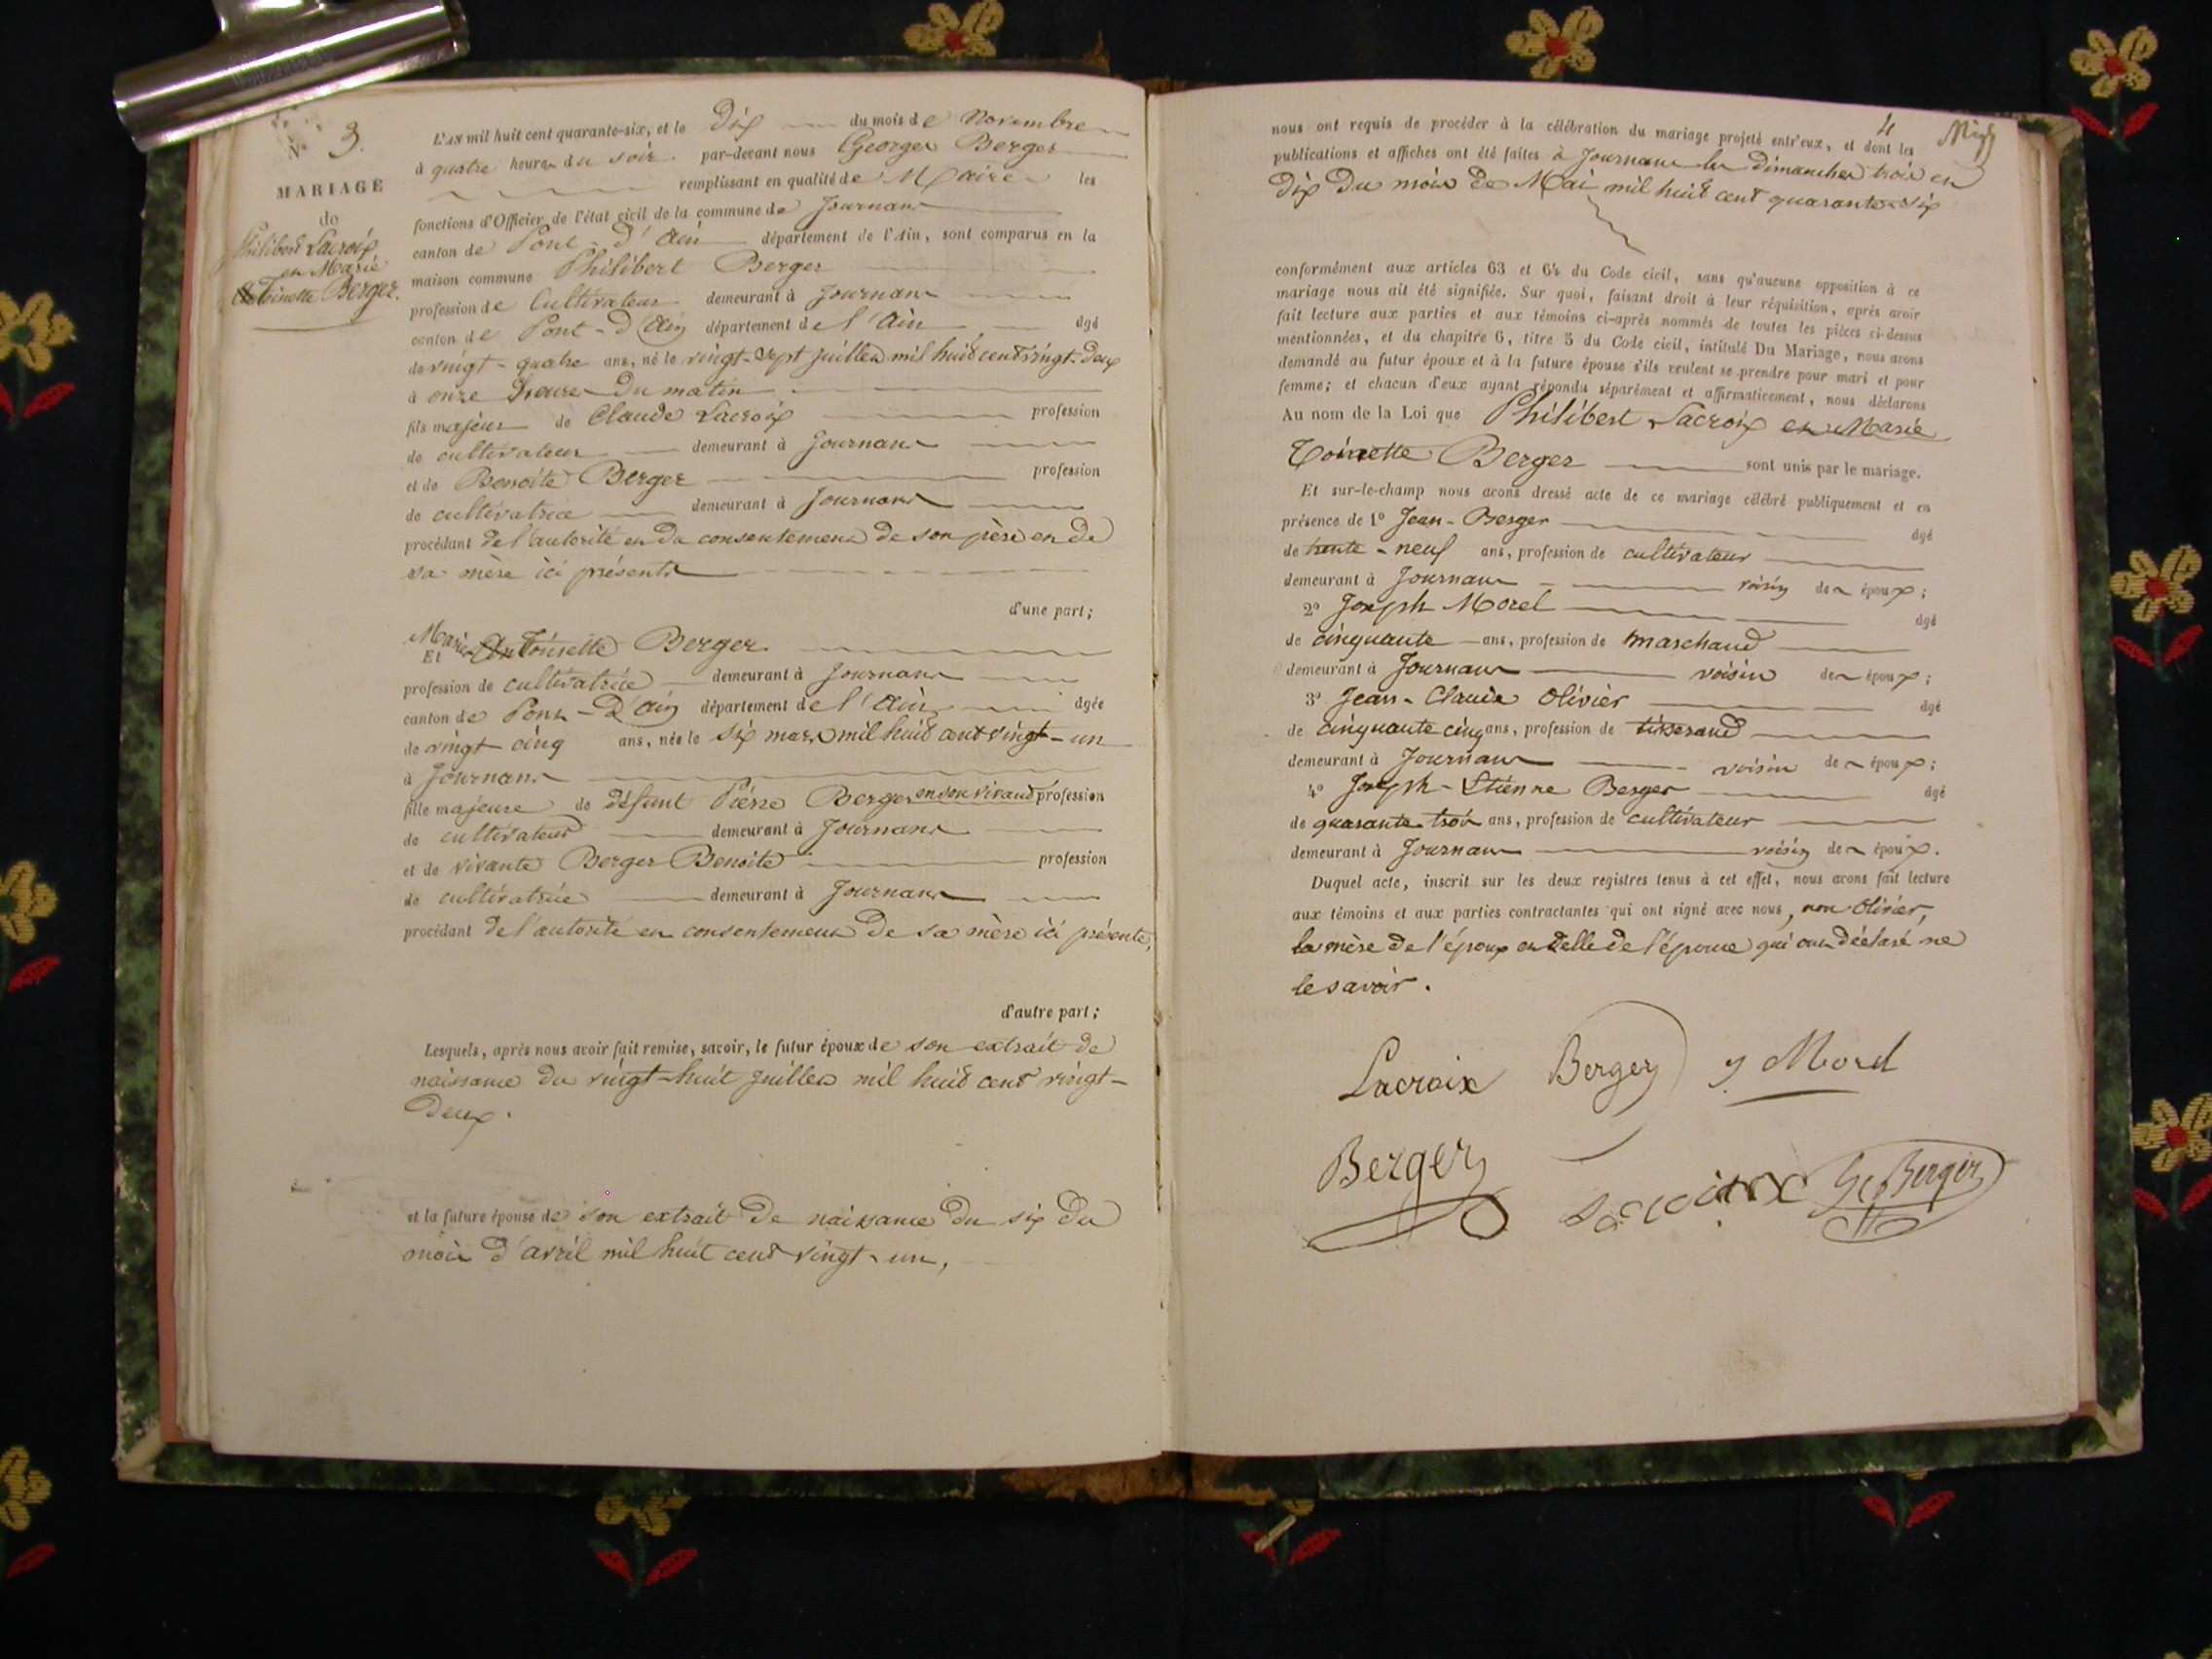 N° 3.
MARIAGE
de
Philibert Lacroix
et Marie
Toinette Berger.
L'AN mil huit cent quarante-six, et le Dix du mois de Novembre
à quatre heures du soir. par-devant nous Georges Berger
remplissant en qualité de Maire les
fonctions d'Officier de l'état civil de la commune de Journans
canton de Pont-d'Ain département de l'Ain, sont comparus en la
maison commune Philibert Berger
profession de Cultivateur demeurant à Journans
canton de Pont-d'Ain département de l'Ain âgé
de vingt-quatre ans, né le vingt-sept juillet mil huit cent vingt-deux
à onze heures du matin
fils majeur de Claude Lacroix profession
de cultivateur demeurant à Journans
et de Benoite Berger profession
de cultivatrice demeurant à Journans
procédant de l'autorité et du consentement de son père et de
sa mère ici présents
d'une part;
Et Marie Antoinette Berger
profession de cultivatrice demeurant à Journans
canton de Pont-d'Ain département de l'Ain âgée
de vingt cinq ans, née le six mars mil huit cent vingt-un
à Journans
fille majeure de défunt Pierre Berger en son vivant profession
de cultivateur demeurant à Journans
et de vivante Berger Benoite profession
de cultivatrice demeurant à Journans
procédant de l'autorité et consentement de sa mère ici présente,
d'autre part;
Lesquels, après nous avoir fait remise, savoir, le futur époux de son extrait de
naissance du vingt-huit juillet mil huit cent vingt-
deux.
et la future épouse de son extrait de naissance du six du
mois d'avril mil huit cent vingt-un,
4
nous ont requis de procéder à la célébration du mariage projeté entr'eux, et dont les
publications et affiches ont été faites à Journans les dimanches trois et
dix du mois de Mai mil huit cent quarante-six
conformément aux articles 63 et 64 du Code civil, sans qu'aucune opposition à ce
mariage nous ait été signifiée. Sur quoi, faisant droit à leur réquisition, après avoir
fait lecture aux parties et aux témoins ci-après nommés de toutes les pièces ci-dessus
mentionnées, et du chapitre 6, titre 5 du Code civil, intitulé Du Mariage, nous avons
demandé au futur époux et à la future épouse s'ils veulent se prendre pour mari et pour
femme; et chacun d'eux ayant répondu séparément et affirmativement, nous déclarons
Au nom de la Loi que Philibert Lacroix et Marie
Toinette Berger sont unis par le mariage.
Et sur-le-champ nous avons dressé acte de ce mariage célébré publiquement et en
présence de 1° Jean-Berger âgé
de trente-neuf ans, profession de cultivateur
demeurant à Journans voisin de époux;
2° Joseph Morel âgé
de cinquante ans, profession de marchand
demeurant à Journans voisin de époux;
3° Jean-Claude Olivier âgé
de cinquante cinq ans, profession de tisserand
demeurant à Journans voisin de époux;
4° Joseph-Etienne Berger âgé
de quarante trois ans, profession de cultivateur
demeurant à Journans voisin de époux.
Duquel acte, inscrit sur les deux registres tenus à cet effet, nous avons fait lecture
aux témoins et aux parties contractantes qui ont signé avec nous, non Olivier,
la mère de l'époux et celle de l'épouse qui ont déclaré ne
le savoir.
Lacroix Berger J Morel
Berger Lacroix Ge Berger